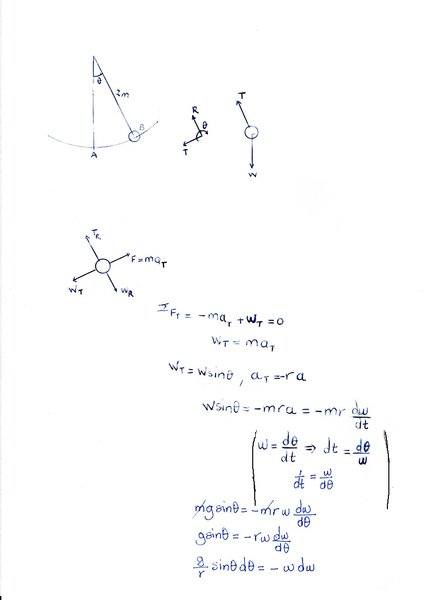 θ
2m
B
A
R
θ
T
T
W
T_R
F=ma_T
W_T
W_R
ΣF_T = -ma_T + W_T = 0
W_T = ma_T
W_T = Wsinθ , a_T = -ra
Wsinθ = -mra = -mr dω/dt
ω = dθ/dt ⇒ dt = dθ/ω
1/dt = ω/dθ
mgsinθ = -mrω dω/dθ
gsinθ = -rω dω/dθ
g/r sinθdθ = -ω dω